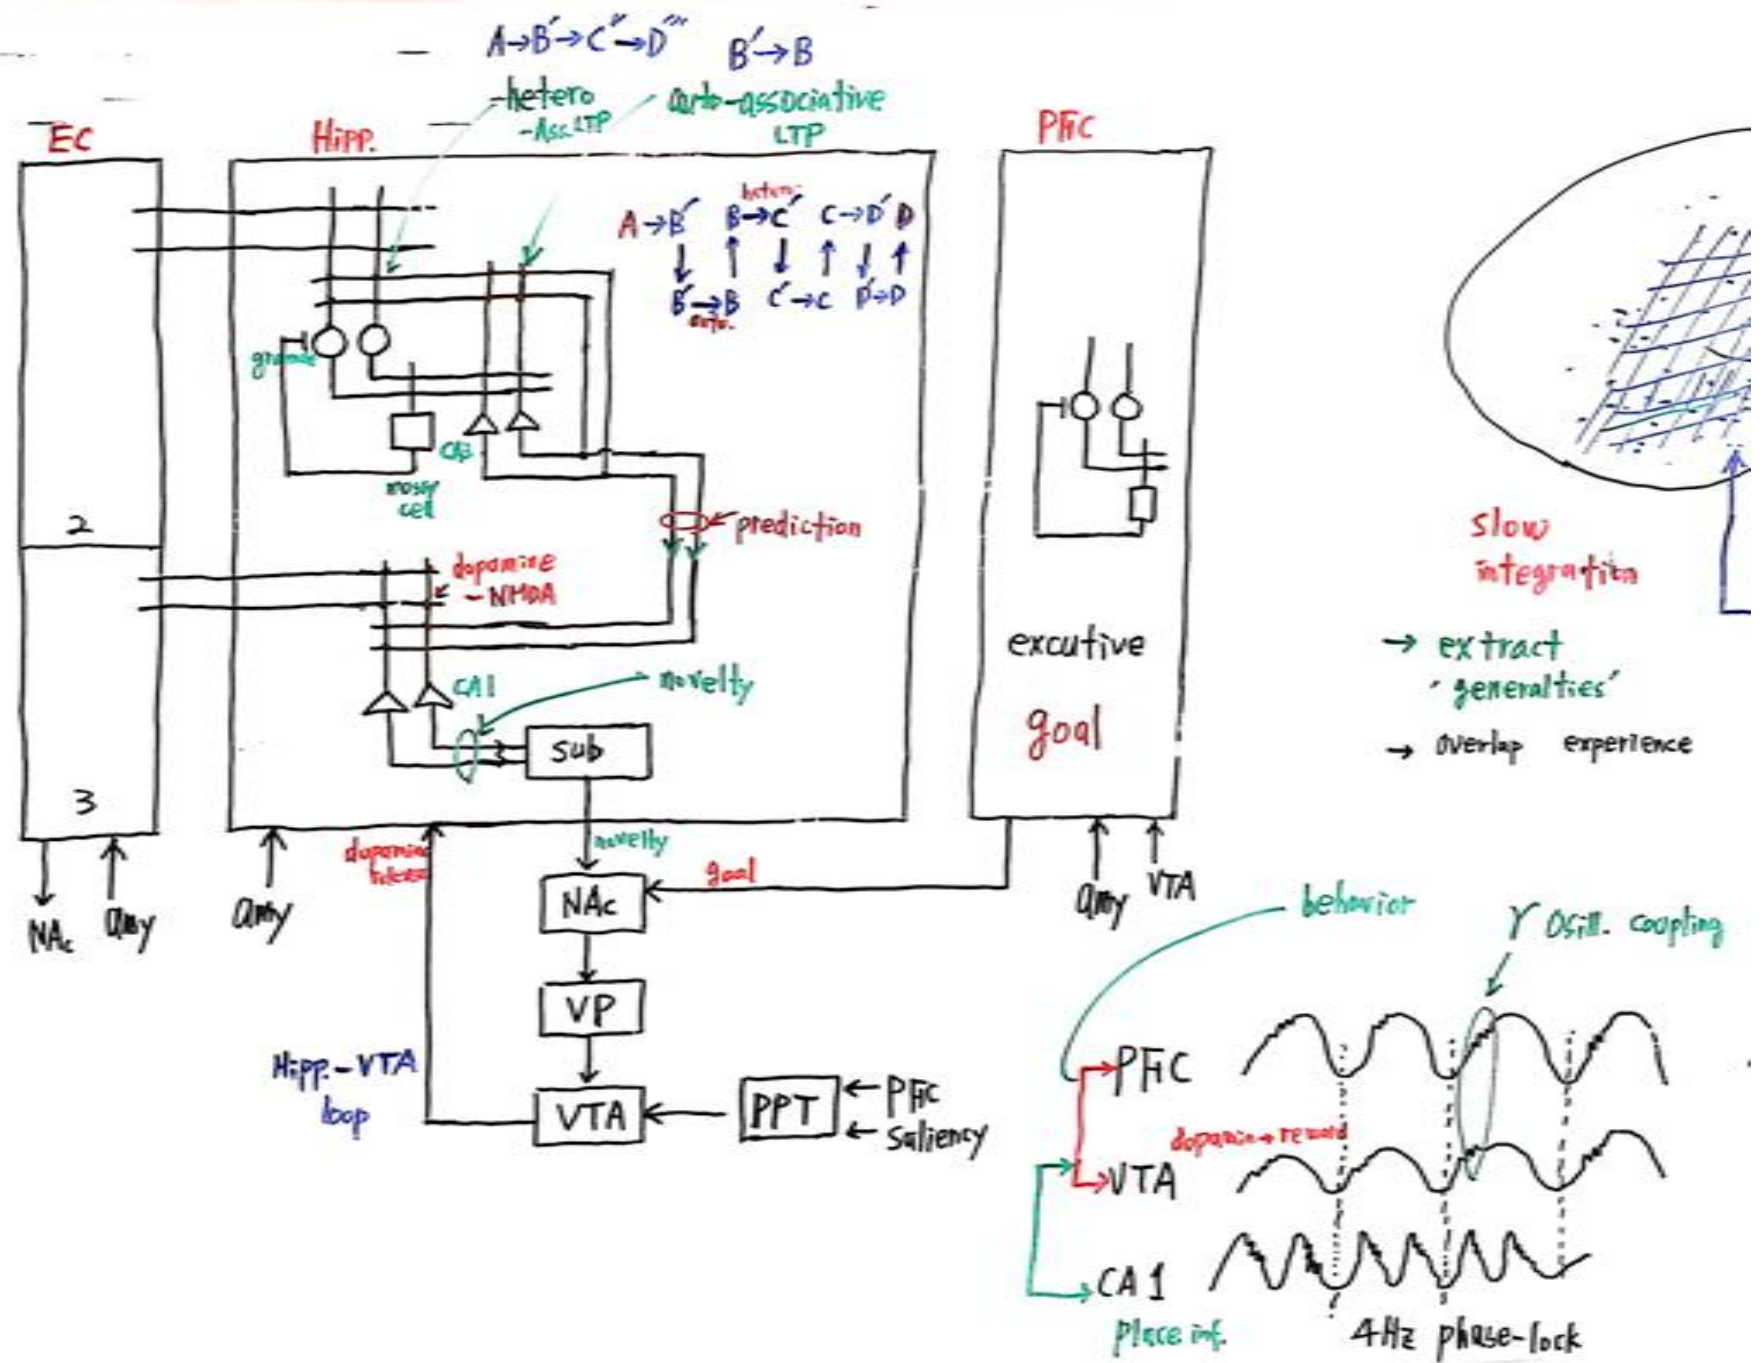 A→B′→C″→D‴
B′→B
-hetero
-Ass. LTP
auto-associative
LTP
EC
Hipp.
PFC
hetero.
A→B′ B→C′ C→D′ D
B′→B C′→C D′→D
auto.
granule
CA3
mossy
cell
2
prediction
dopamine
-NMDA
CA1
novelty
sub
3
excutive
goal
slow
integration
→ extract
'generalties'
→ overlap experience
NAc
amy
amy
dopamine
release
novelty
goal
NAc
amy
VTA
VP
Hipp.-VTA
loop
VTA
PPT
← PFC
← saliency
behavior
γ Osill. coupling
PFC
dopamin→reward
VTA
CA1
Place inf.
4Hz phase-lock